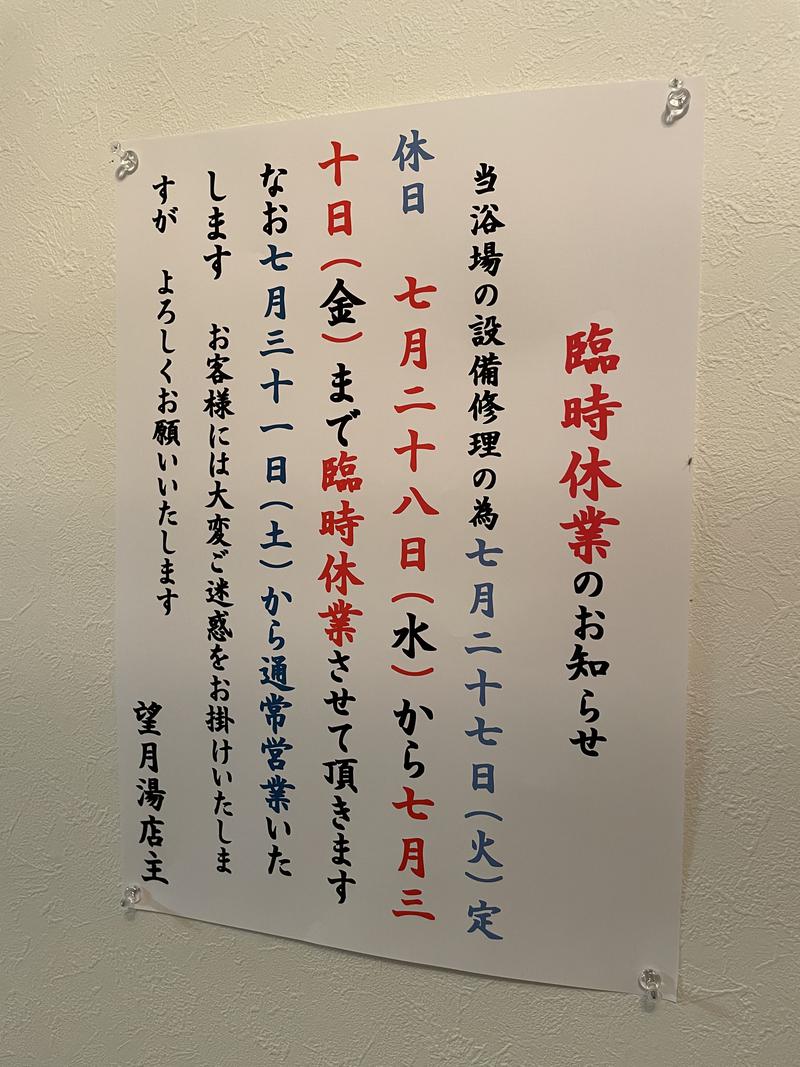 臨時休業のお知らせ
当浴場の設備修理の為七月二十七日（火）定
休日　七月二十八日（水）から七月三
十日（金）まで臨時休業させて頂きます
なお七月三十一日（土）から通常営業いた
します　お客様には大変ご迷惑をお掛けいたしま
すが　よろしくお願いいたします
望月湯店主